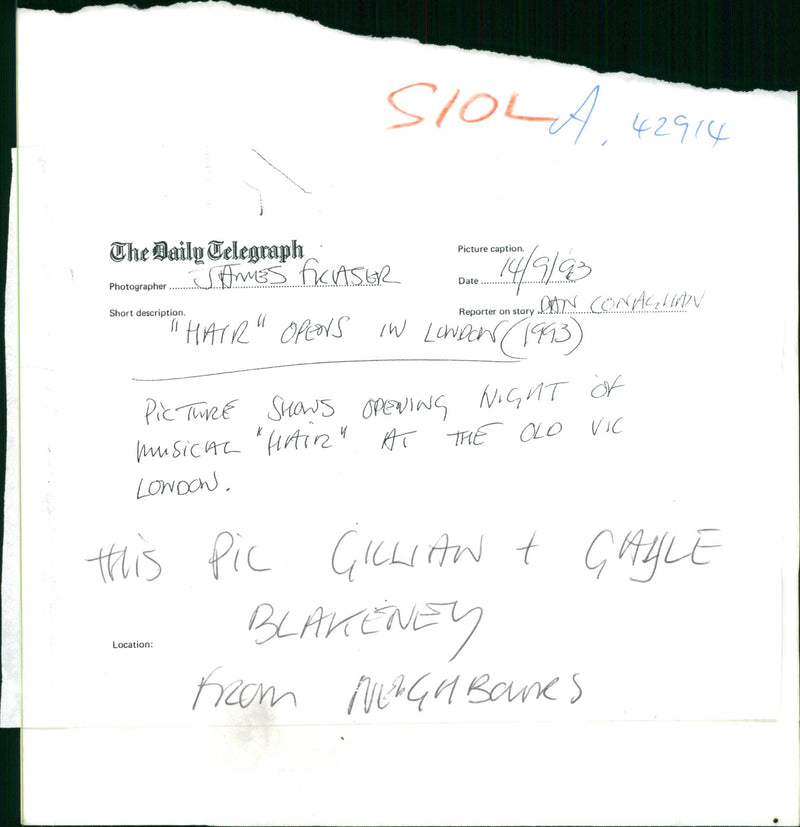 SIOL A. 42914
The Daily Telegraph
Picture caption.
Photographer JAMES FRASER
Date 14/9/93
Short description.
Reporter on story DAN CONAGHAN
"HAIR" OPENS IN LONDON (1993)
PICTURE SHOWS OPENING NIGHT OF
MUSICAL "HAIR" AT THE OLD VIC
LONDON.
THIS PIC GILLIAN + GAYLE
BLAKENEY
Location:
FROM NEIGHBOURS